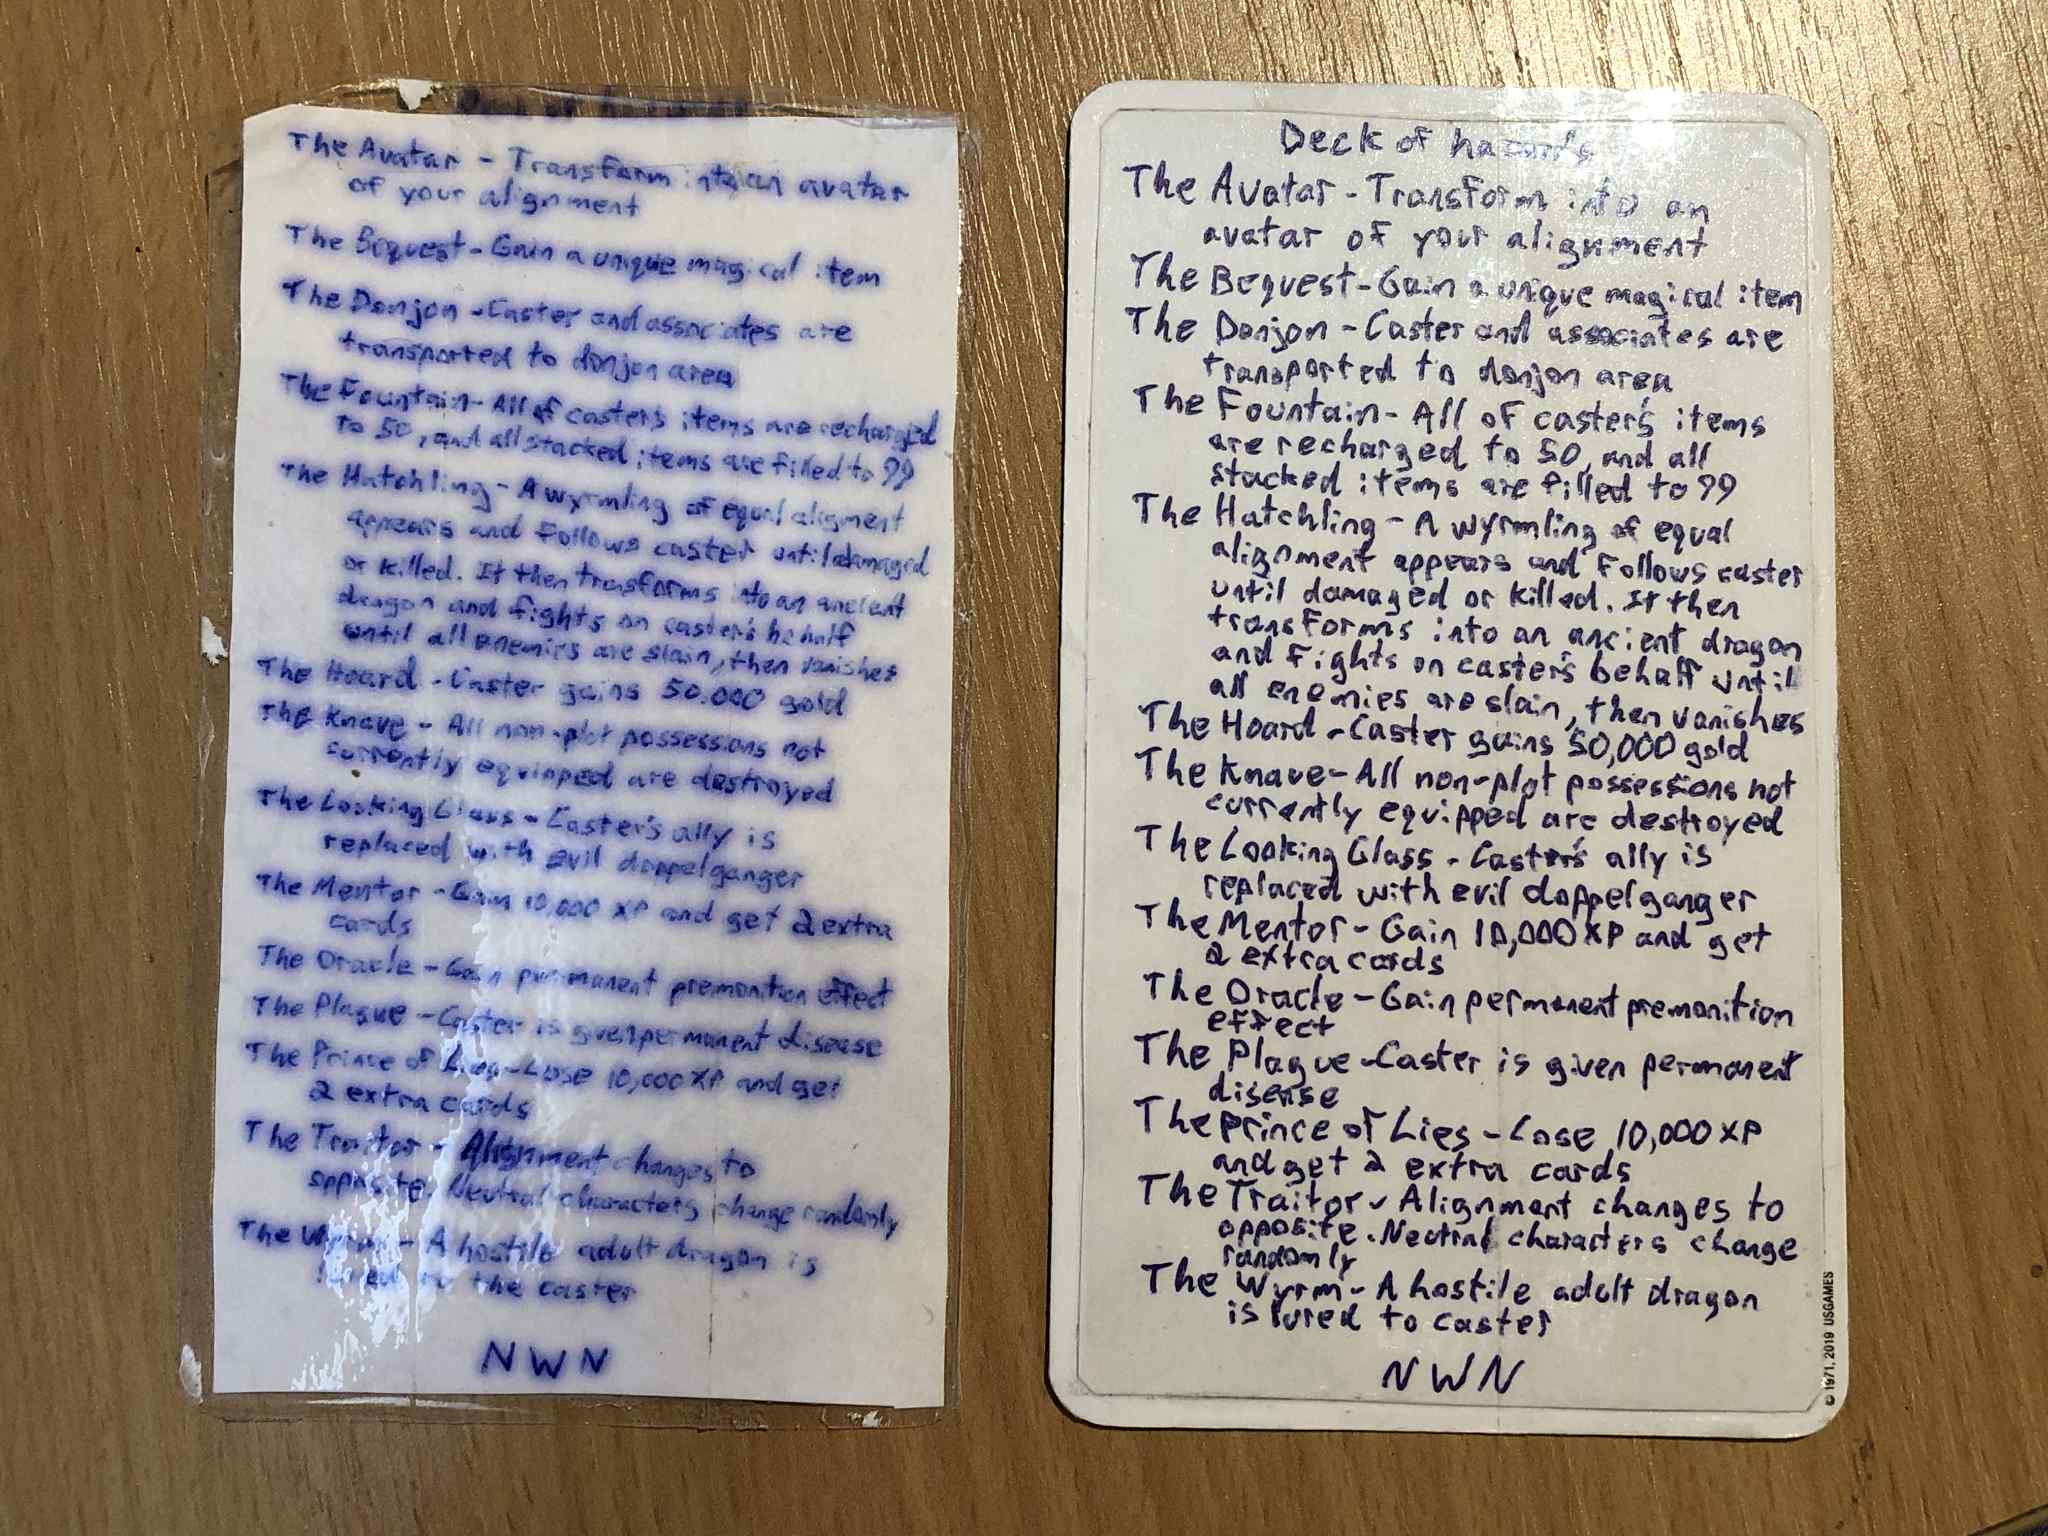 Deck of hazards
The Avatar - Transform into an avatar
of your alignment
The Bequest - Gain a unique magical item
The Donjon - Caster and associates are
transported to donjon area
The Fountain - All of caster's items are recharged
to 50, and all stacked items are filled to 99
The Hatchling - A wyrmling of equal aligment
appears and follows caster until damaged
or killed. It then transforms into an ancient
dragon and fights on caster's behalf
until all enemies are slain, then vanishes
The Hoard - Caster gains 50.000 gold
The Knave - All non-plot possessions not
currently equipped are destroyed
The Looking Glass - Caster's ally is
replaced with evil doppelganger
The Mentor - Gain 10,000 XP and get 2 extra
cards
The Oracle - Gain permanent premonition effect
The Plague - Caster is given permanent disease
The Prince of Lies - Lose 10,000 XP and get
2 extra cards
The Traitor - Alignment changes to
opposite. Neutral characters change randomly
The Wyrm - A hostile adult dragon is
lured to the caster
NWN
Deck of hazards
The Avatar - Transform into an
avatar of your alignment
The Bequest - Gain a unique magical item
The Donjon - Caster and associates are
transported to donjon area
The Fountain - All of caster's items
are recharged to 50, and all
stacked items are filled to 99
The Hatchling - A wyrmling of equal
alignment appears and follows caster
until damaged or killed. It then
transforms into an ancient dragon
and fights on caster's behalf until
all enemies are slain, then vanishes
The Hoard - Caster gains 50,000 gold
The Knave - All non-plot possessions not
currently equipped are destroyed
The Looking Glass - Caster's ally is
replaced with evil doppelganger
The Mentor - Gain 10,000 XP and get
2 extra cards
The Oracle - Gain permanent premonition
effect
The Plague - Caster is given permanent
disease
The prince of Lies - Lose 10,000 XP
and get 2 extra cards
The Traitor - Alignment changes to
opposite. Neutral characters change
randomly
The Wyrm - A hostile adult dragon
is lured to caster
NWN
© 1971, 2019 USGAMES